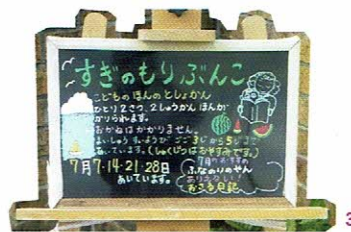 すぎのもりぶんこ
こどものほんのとしょかん
ひとり2さつ、2しゅうかんほんが
かりられます。
おかねはかかりません。
まいしゅうすいようびごご3じから5じまで
あいています。(しゅくじつはおやすみです。)
7月7・14・21・28日
あいています。
7月のおすすめ
ふなのりのやん
3